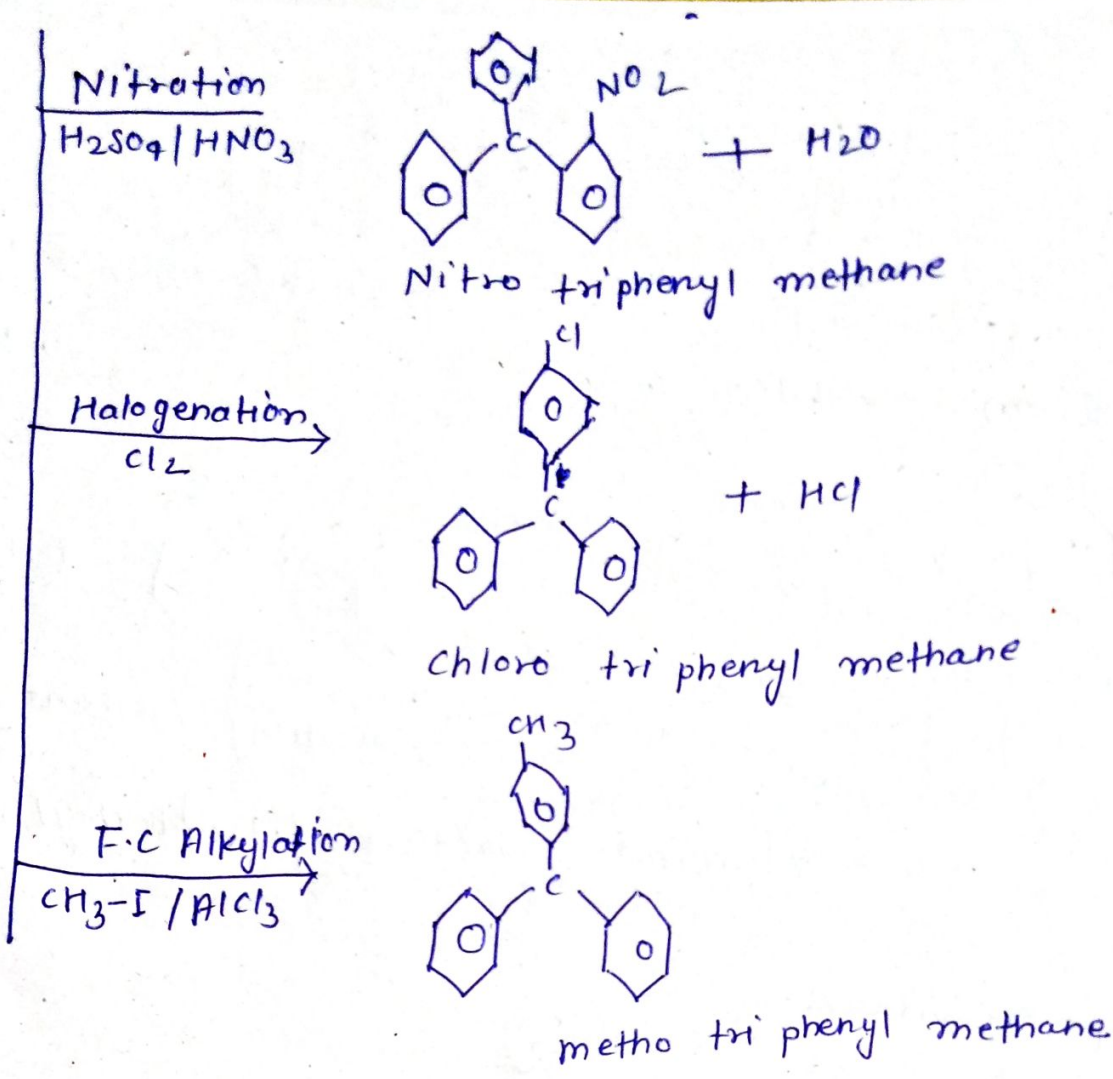 Nitration
H2SO4 / HNO3
NO2
C
+ H2O
Nitro triphenyl methane
Cl
Halogenation
Cl2
C
+ HCl
Chloro tri phenyl methane
CH3
F.C Alkylation
CH3-I / AlCl3
C
metho tri phenyl methane